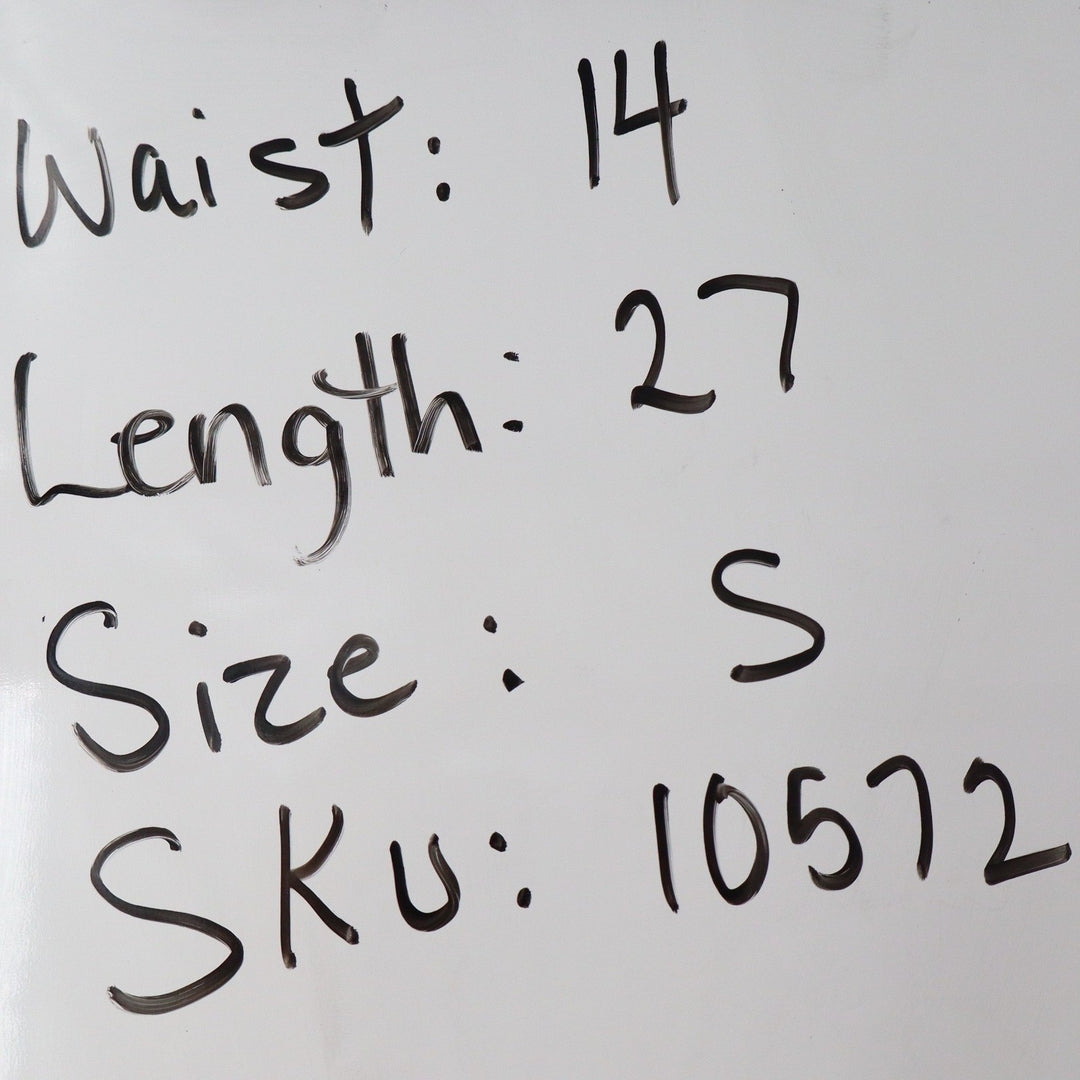 Waist: 14
Length: 27
Size: S
SKU: 10572